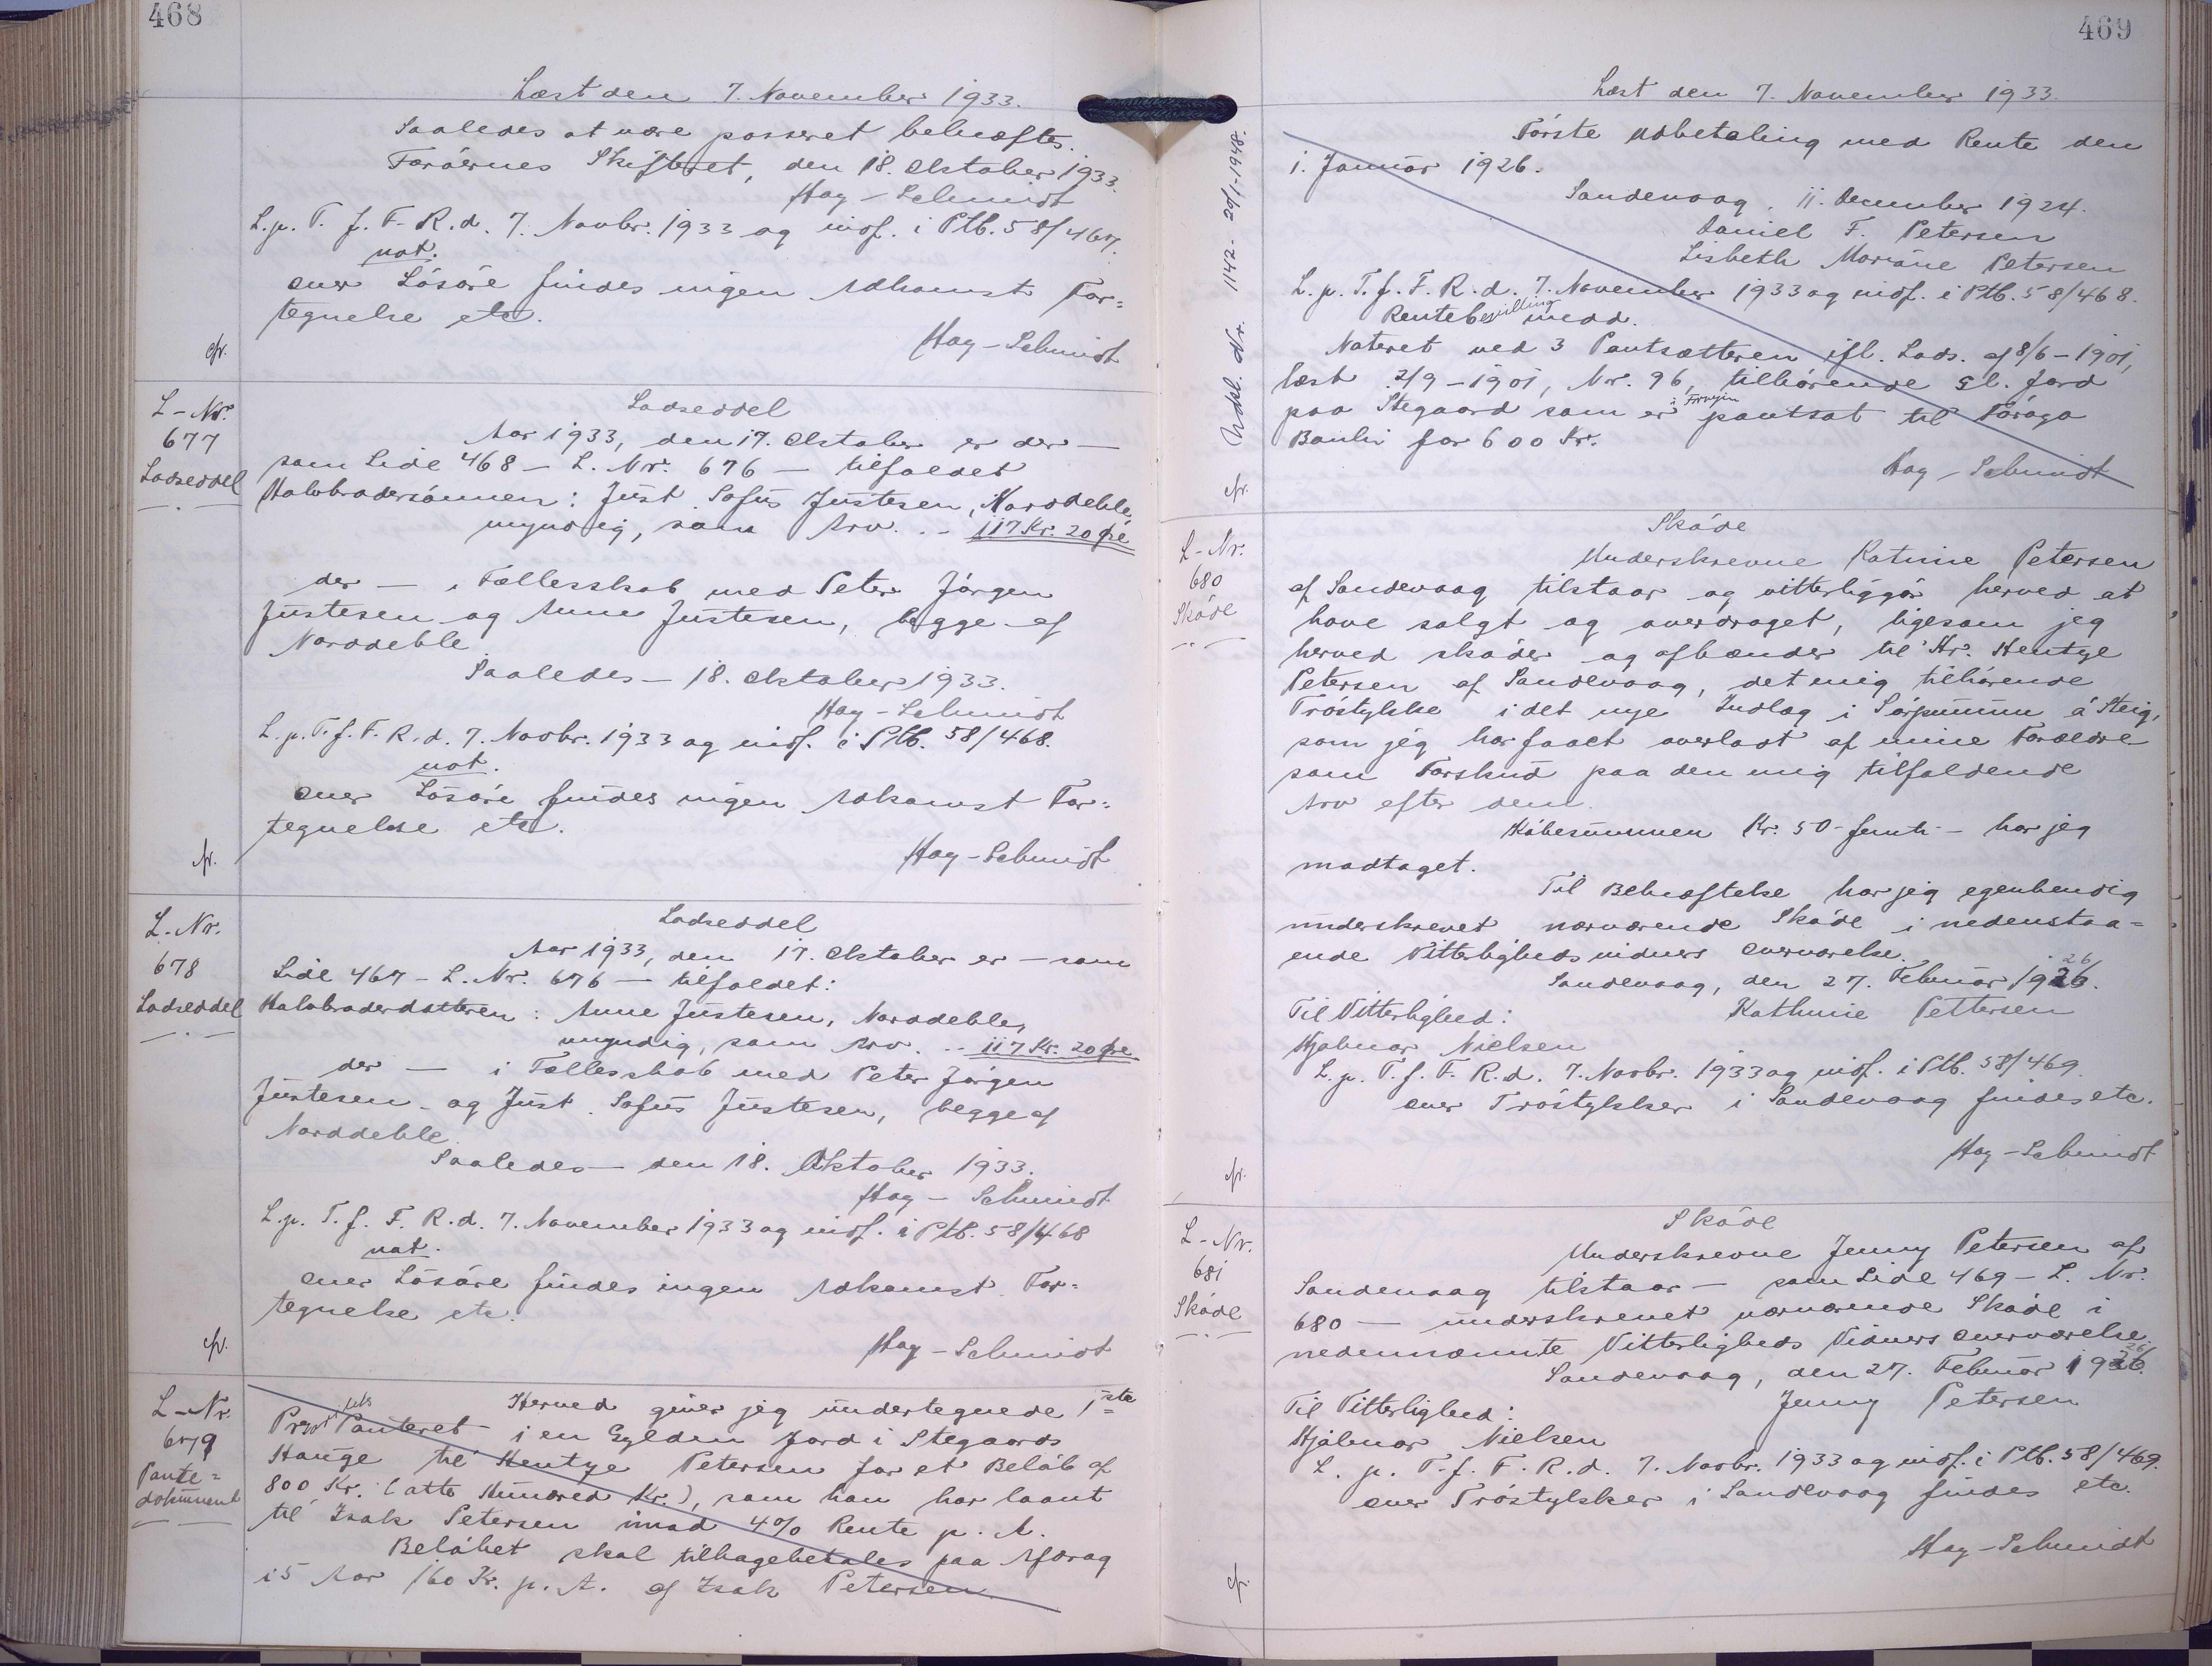 468
Læst den 7. November 1933.
Saaledes at være passeret bekræftes.
Færøernes Skifteret, den 18. Oktober 1933.
Hag-Schmidt
L.p. T. f. F. R. d. 7. Novbr. 1933 og indf. i Ptb. 58/467.
not.
over Løsøre findes ingen Adkomst For=
tegnelse etc.
Hag-Schmidt
cfr.
L-Nr.
677
Lodseddel
Lodseddel
Aar 1933, den 17. Oktober er der —
som Side 468 — L. Nr. 676 — tilfaldet
Halvbrodersønnen: Just Sofus Justesen, Norddeble,
myndig, som Arv. .. 117 Kr. 20 Øre
der — i Fællesskab med Peter Jørgen
Justesen og Anne Justesen, begge af
Norddeble
Saaledes — 18. Oktober 1933.
Hag-Schmidt
L.p. T. f. F. R. d. 7. Novbr. 1933 og indf. i Ptb. 58/468.
not.
over Løsøre findes ingen Adkomst For=
tegnelse etc.
Hag-Schmidt
cfr.
L-Nr.
678
Lodseddel
Lodseddel
Aar 1933, den 17. Oktober er — som
Side 467 — L. Nr. 676 — tilfaldet:
Halvbroderdatteren: Anne Justesen, Norddeble,
umyndig, som Arv. .. 117 Kr. 20 Øre
der — i Fællesskab med Peter Jørgen
Justesen og Just Sofus Justesen, begge af
Norddeble
Saaledes — den 18. Oktober 1933.
Hag-Schmidt
L.p. T. f. F. R. d. 7. November 1933 og indf. i Ptb. 58/468
not.
over Løsøre findes ingen Adkomst For=
tegnelse etc.
Hag-Schmidt
cfr.
L-Nr.
679
Pante=
dokument
Herved giver jeg undertegnede 1ste
Prioritets Panteret i en Gylden Jord i Stegaards
Hauge til Hentye Petersen for et Beløb af
800 Kr. (otte Hundred Kr.), som han har laant
til Isak Petersen imod 4% Rente p. A.
Beløbet skal tilbagebetales paa Afdrag
i 5 Aar 160 Kr. p. A. af Isak Petersen
469
Læst den 7. November 1933.
Første Udbetaling med Rente den
1. Januar 1926.
Sandevaag, 11. December 1924.
Daniel F. Petersen
Lisbeth Mariane Petersen
L.p. T. f. F. R. d. 7. November 1933 og indf. i Ptb. 58/468.
Rentebevilling medd.
Noteret ved 3 Pantsætteren ifl. Lods. af 8/6-1901,
læst 2/9-1901, Nr. 96, tilhørende gl. Jord
paa Stegaard som er i Forvejen pantsat til Føroya
Banki for 600 Kr.
Hag-Schmidt
Udsl. Nr. 1142 - 20/1-1948.
cfr.
L-Nr.
680
Skøde
Skøde
Underskrevne Katrine Petersen
af Sandevaag tilstaar og vitterliggør herved at
have solgt og overdraget, ligesom jeg
herved skøder og afhænder til Hr. Hentye
Petersen af Sandevaag, det mig tilhørende
Trøstykke i det nye Indlæg i á Steig,
som jeg har faaet overladt af mine Forældre
som Forskud paa den mig tilfaldende
Arv efter dem.
Købesummen Kr. 50 - femti - har jeg
modtaget.
Til Bekræftelse har jeg egenhendig
underskrevet nærværende Skøde i nedenstaa=
ende Vitterligheds vidners Overværelse.
Sandevaag, den 27. Februar 1926.
26
Til Vitterlighed: Kathrine Pettersen
Hjalmar Nielsen
L.p. T. f. F. R. d. 7. Novbr. 1933 og indf. i Ptb. 58/469.
over Trøstykker i Sandevaag findes etc.
Hag-Schmidt
cfr.
L-Nr.
681
Skøde
Skøde
Underskrevne Jenny Petersen af
Sandevaag tilstaar — som Side 469 — L. Nr.
680 — underskrevet nærværende Skøde i
nedennævnte Vitterligheds Vidners Overværelse.
Sandevaag, den 27. Februar 1926.
26
Til Vitterlighed: Jenny Petersen
Hjalmar Nielsen
L. p. T. f. F. R. d. 7. Novbr. 1933 og indf. i Ptb. 58/469.
over Trøstykker i Sandevaag findes etc.
Hag-Schmidt
cfr.